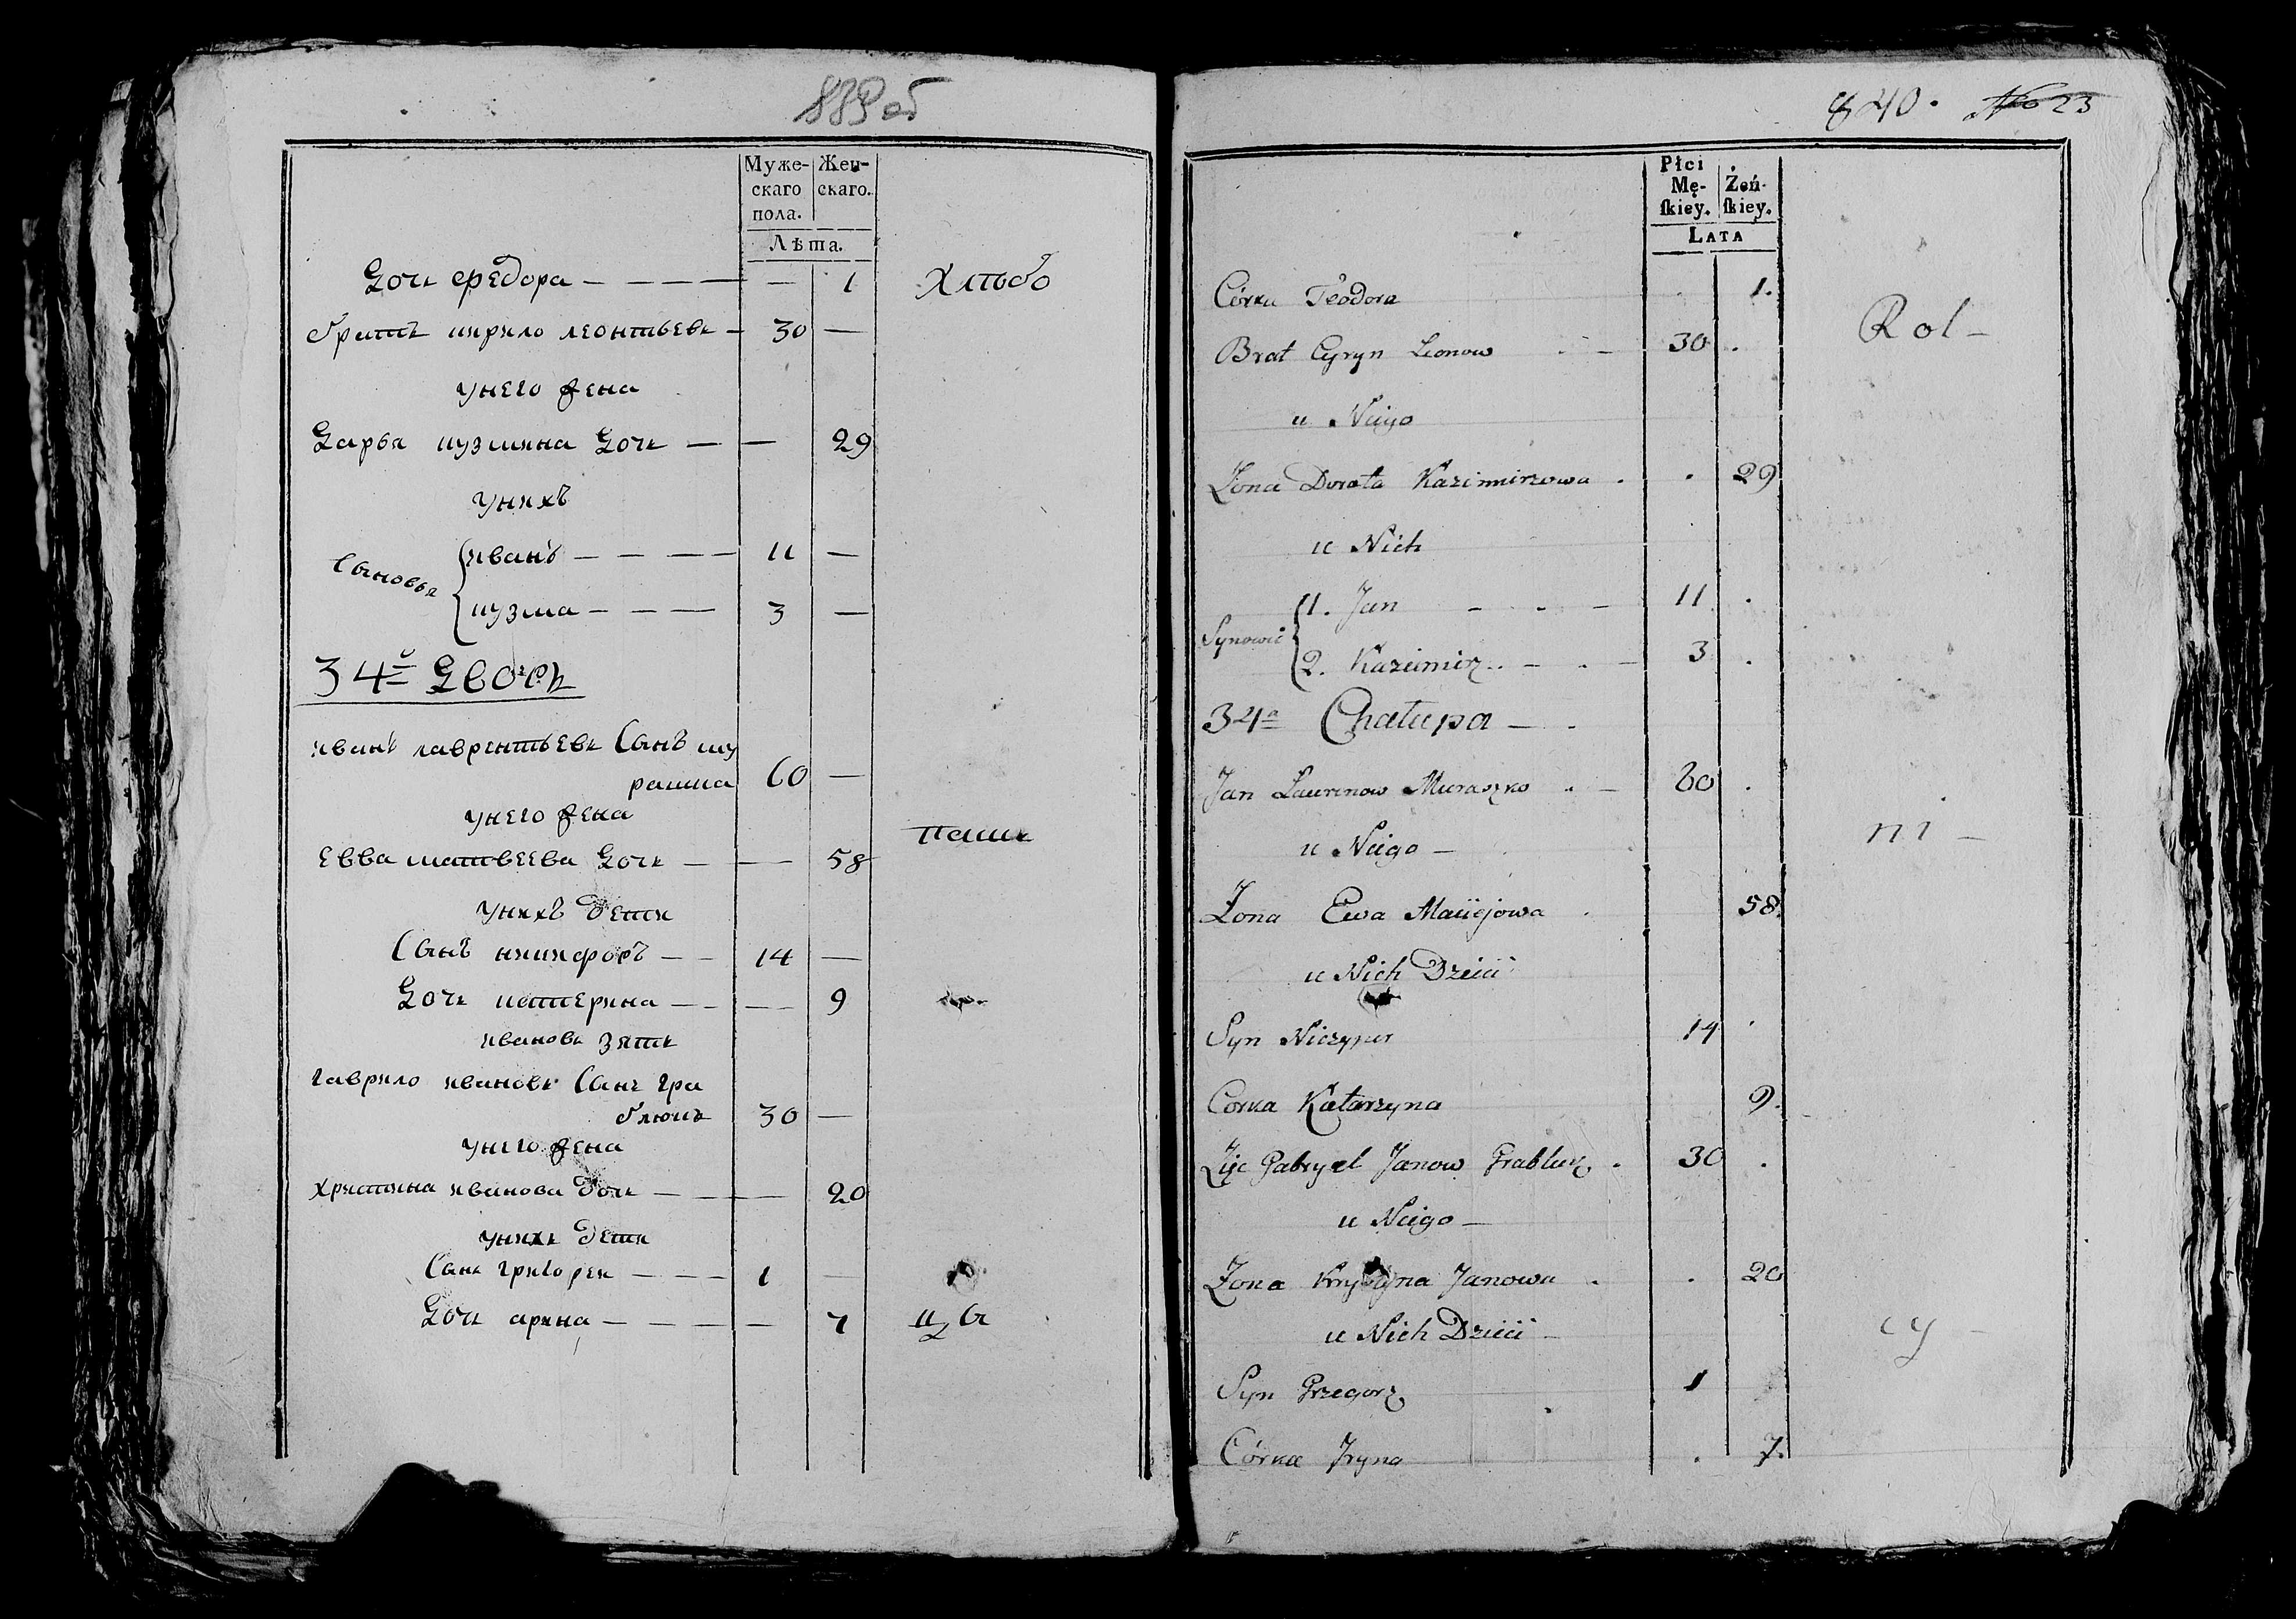 839 об
Муже- Жен-
скаго скаго.
пола.
Лѣта.
Дочь Федора — — — — — 1 Хлѣбо
братъ кирило леонтьевъ — 30 —
унего жена
Дарья кузмина Дочь — — 29
унихъ
Сыновья
иванъ — — — — 11 —
кузма — — — 3 —
34й Дворъ
иванъ лаврентьевъ Сынъ му
рашка 60 —
унего жена
Евва матвеева Дочь — — 58
паши
унихъ дети
Сынъ никифоръ — — 14 —
Дочь катерина — — — 9
ивановъ зять
гаврило ивановъ Сынъ гра
блюкъ 30 —
унего жена
христина иванова дочь — — — 20
унихъ дети
Сынъ григорей — — — 1 —
Дочь арина — — — — — 7 цы
840. No 23
Płci
Mę- Żeń-
skiey. skiey.
LATA
Córka Teodora 1.
Brat Cyryn Leonow 30 . Rol-
u Niego
Żona Dorota Kazimirzowa . . 29
u Nich
Synowie
1. Jan - . - 11 .
2. Kazimirz . - . - 3 .
34a Chałupa — .
Jan Laurenow Muraszko . - 60 .
u Niego — ni —
Żona Ewa Maciejowa . 58.
u Nich Dzieci
Syn Niczypor 14 .
Corka Katarzyna 9.
Zięć Gabryel Janow Grabluk . 30 .
u Niego —
Żona Krystyna Janowa . . 20
u Nich Dzieci — cy —
Syn Grzegorz 1
Córka Jryna . 7.